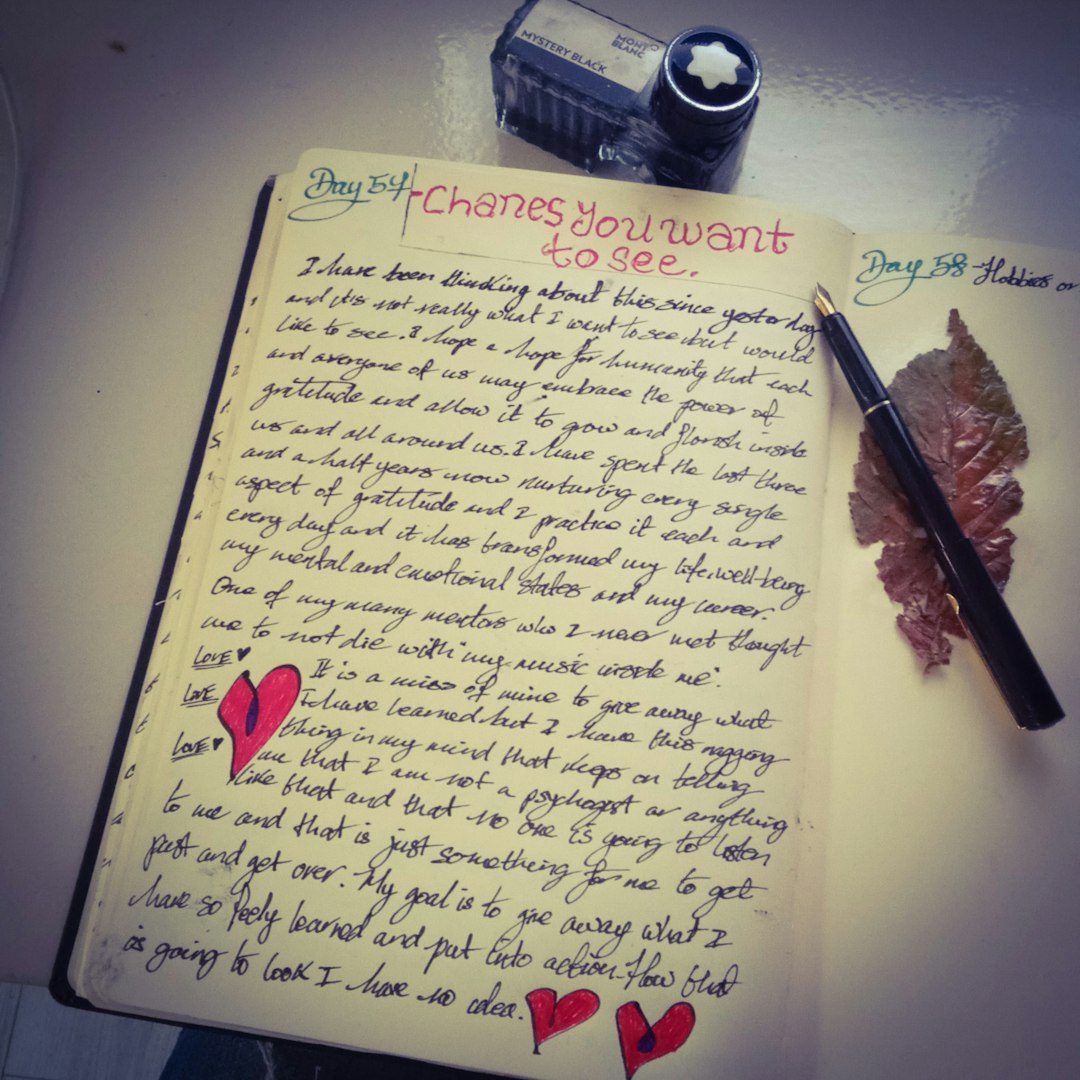 MONT
BLANC
MYSTERY BLACK
Day 57
-Chanes You want
to see.
I have been thinking about this since yesterday
and its not really what I want to see but would
like to see. I hope a hope for humanity that each
and everyone of us may embrace the power of
gratitude and allow it to grow and florish inside
us and all around us. I have spent the last three
and a half years now nurturing every single
aspect of gratitude and I practice it each and
every day and it has transformed my life, well-being
my mental and emotional states and my career.
One of my many mentors who I never met thought
me to not die with my music inside me.
LOVE
LOVE
LOVE
It is a miss of mine to give away what
I have learned but I have this nagging
thing in my mind that keps on telling
me that I am not a psychogist or anything
like that and that no one is going to listen
to me and that is just something for me to get
past and get over. My goal is to give away what I
have so feely learned and put into action. How that
is going to look I have no idea.
Day 58 - Hobbies or